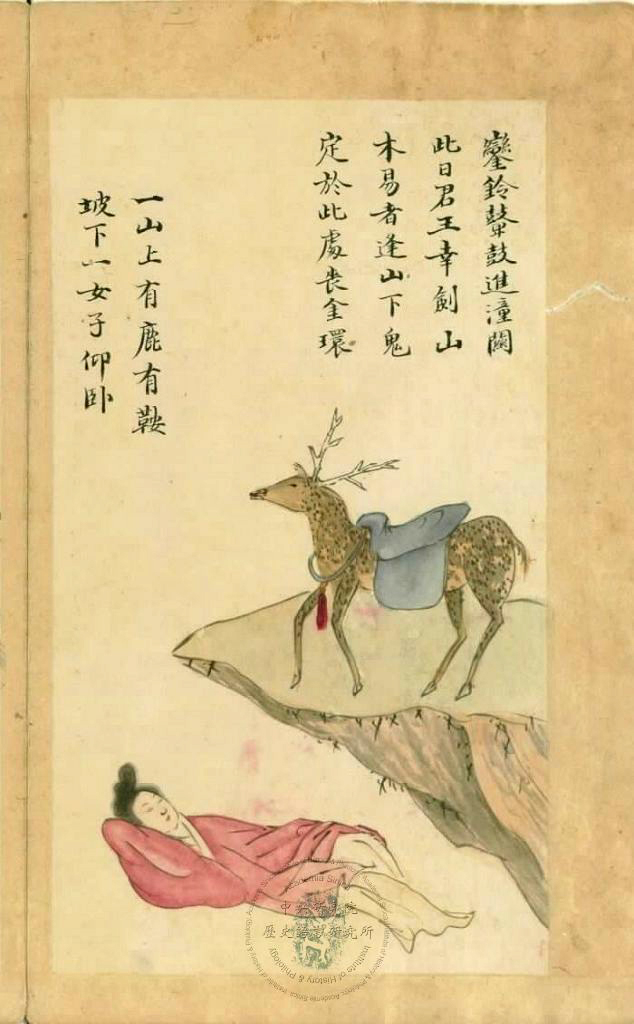 鑾鈴鼙鼓進潼關
此日君王幸劍山
木易者逢山下鬼
定於此處喪金環
一山上有鹿有鞍
坡下一女子仰卧
Academia Sinica
中央研究院
歷史語言研究所
Institute of History & Philology